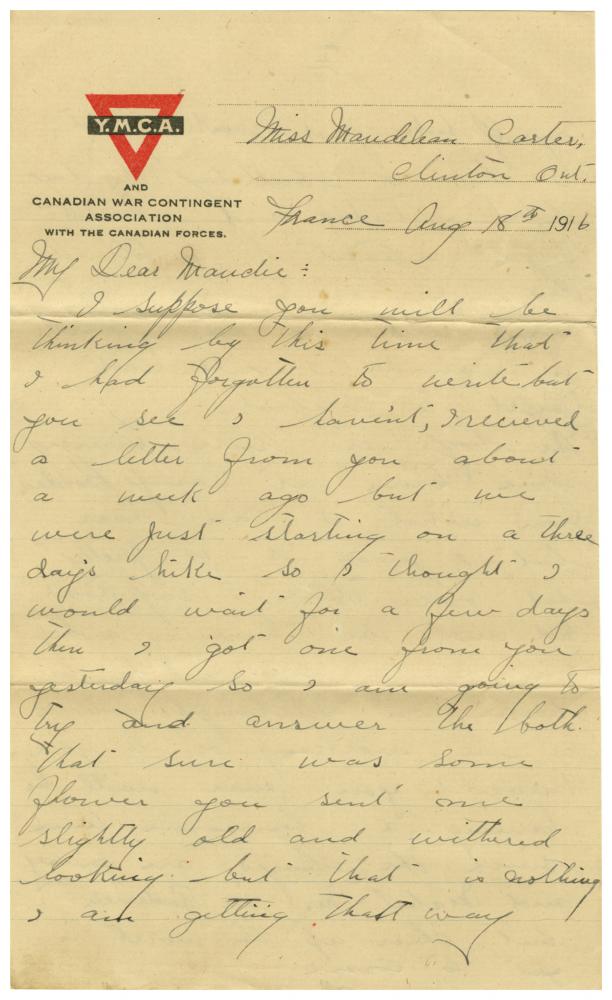 Y.M.C.A.
AND
CANADIAN WAR CONTINGENT
ASSOCIATION
WITH THE CANADIAN FORCES.
Miss Maudelean Carter,
Clinton Ont.
France Aug 18th 1916
My Dear Maudie:
I suppose you will be
thinking by this time that
I had forgotten to write but
you see I havin't, I recieved
a letter from you about
a week ago but we
were just starting on a three
days hike so I thought I
would wait for a few days
then I got one from you
yesterday so I am going to
try and answer the both.
that sure was some
flower you sent me
slightly old and withered
looking but that is nothing
I am getting that way